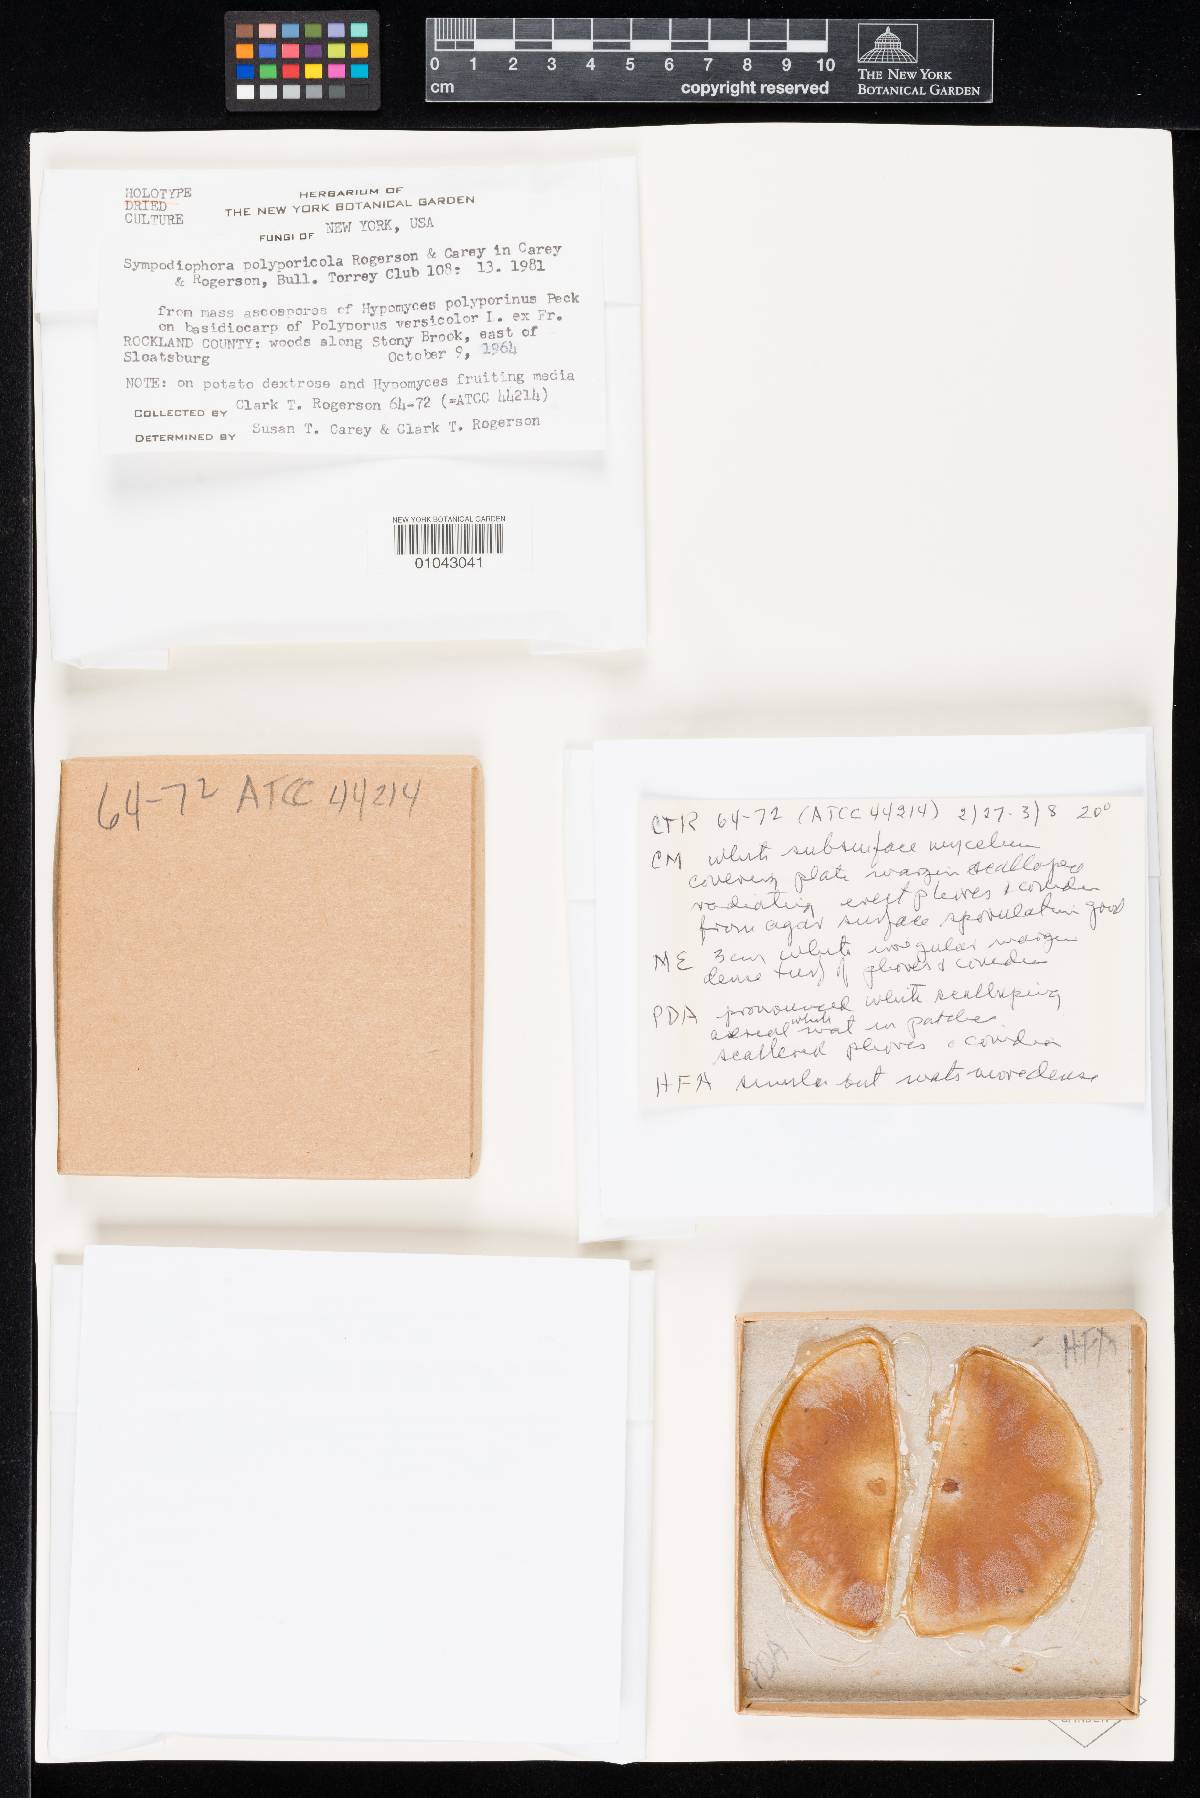 0 1 2 3 4 5 6 7 8 9 10
cm copyright reserved
THE NEW YORK
BOTANICAL GARDEN
HOLOTYPE
DRIED
CULTURE
HERBARIUM OF
THE NEW YORK BOTANICAL GARDEN
FUNGI OF NEW YORK, USA
Sympodiophora polyporicola Rogerson & Carey in Carey
& Rogerson, Bull. Torrey Club 108: 13. 1981
from mass ascospores of Hypomyces polyporinus Peck
on basidiocarp of Polyporus versicolor L. ex Fr.
ROCKLAND COUNTY: woods along Stony Brook, east of
Sloatsburg October 9, 1964
NOTE: on potato dextrose and Hypomyces fruiting media
COLLECTED BY Clark T. Rogerson 64-72 (=ATCC 44214)
DETERMINED BY Susan T. Carey & Clark T. Rogerson
NEW YORK BOTANICAL GARDEN
01043041
64-72 ATCC 44214
CTR 64-72 (ATCC 44214) 2/27-3/8 20°
CM white subsurface mycelium
covering plate margin scalloped
radiating erect phores & conidia
from agar surface sporulation good
ME 3cm white irregular margin
dense turf of phores & conidia
PDA pronounced white scalloping
aereal white mat in patches
scattered phores & conidia
HFA similar but mats more dense
HFA
PDA
GARDEN